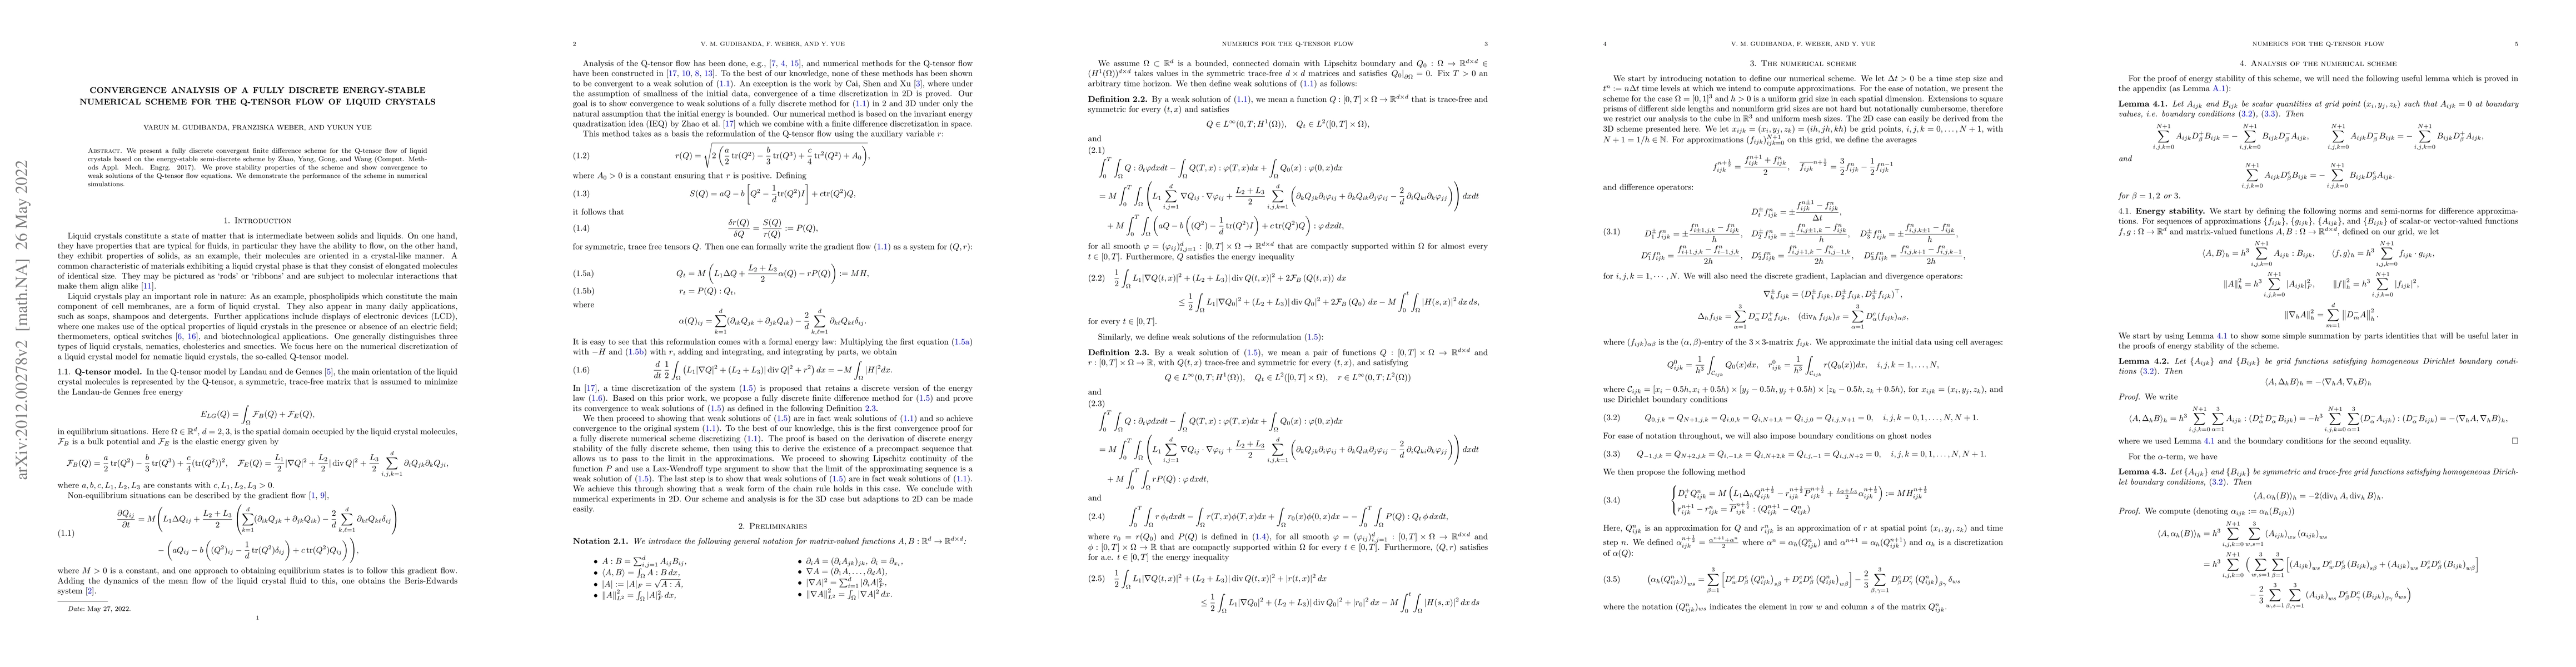 arXiv:2012.00278v2 [math.NA] 26 May 2022
CONVERGENCE ANALYSIS OF A FULLY DISCRETE ENERGY-STABLE
NUMERICAL SCHEME FOR THE Q-TENSOR FLOW OF LIQUID CRYSTALS
VARUN M. GUDIBANDA, FRANZISKA WEBER, AND YUKUN YUE
Abstract. We present a fully discrete convergent finite difference scheme for the Q-tensor flow of liquid
crystals based on the energy-stable semi-discrete scheme by Zhao, Yang, Gong, and Wang (Comput. Meth-
ods Appl. Mech. Engrg. 2017). We prove stability properties of the scheme and show convergence to
weak solutions of the Q-tensor flow equations. We demonstrate the performance of the scheme in numerical
simulations.
1. Introduction
Liquid crystals constitute a state of matter that is intermediate between solids and liquids. On one hand,
they have properties that are typical for fluids, in particular they have the ability to flow, on the other hand,
they exhibit properties of solids, as an example, their molecules are oriented in a crystal-like manner. A
common characteristic of materials exhibiting a liquid crystal phase is that they consist of elongated molecules
of identical size. They may be pictured as 'rods' or 'ribbons' and are subject to molecular interactions that
make them align alike [11].
Liquid crystals play an important role in nature: As an example, phospholipids which constitute the main
component of cell membranes, are a form of liquid crystal. They also appear in many daily applications,
such as soaps, shampoos and detergents. Further applications include displays of electronic devices (LCD),
where one makes use of the optical properties of liquid crystals in the presence or absence of an electric field;
thermometers, optical switches [6, 16], and biotechnological applications. One generally distinguishes three
types of liquid crystals, nematics, cholesterics and smectics. We focus here on the numerical discretization of
a liquid crystal model for nematic liquid crystals, the so-called Q-tensor model.
1.1. Q-tensor model. In the Q-tensor model by Landau and de Gennes [5], the main orientation of the liquid
crystal molecules is represented by the Q-tensor, a symmetric, trace-free matrix that is assumed to minimize
the Landau-de Gennes free energy
E_{LG}(Q) = ∫_Ω F_B(Q) + F_E(Q),
in equilibrium situations. Here Ω ∈ ℝ^d, d = 2, 3, is the spatial domain occupied by the liquid crystal molecules,
F_B is a bulk potential and F_E is the elastic energy given by
F_B(Q) = a/2 tr(Q²) − b/3 tr(Q³) + c/4 (tr(Q²))², F_E(Q) = L_1/2 |∇Q|² + L_2/2 |div Q|² + L_3/2 ∑_{i,j,k=1}^d ∂_iQ_{jk}∂_kQ_{ji},
where a, b, c, L_1, L_2, L_3 are constants with c, L_1, L_2, L_3 > 0.
Non-equilibrium situations can be described by the gradient flow [1, 9],
(1.1) ∂Q_{ij}/∂t = M( L_1ΔQ_{ij} + (L_2+L_3)/2 ( ∑_{k=1}^d (∂_{ik}Q_{jk} + ∂_{jk}Q_{ik}) − 2/d ∑_{k,ℓ=1}^d ∂_{kℓ}Q_{kℓ}δ_{ij} )
− ( aQ_{ij} − b( (Q²)_{ij} − 1/d tr(Q²)δ_{ij} ) + c tr(Q²)Q_{ij} ) ),
where M > 0 is a constant, and one approach to obtaining equilibrium states is to follow this gradient flow.
Adding the dynamics of the mean flow of the liquid crystal fluid to this, one obtains the Beris-Edwards
system [2].
Date: May 27, 2022.
1
2 V. M. GUDIBANDA, F. WEBER, AND Y. YUE
Analysis of the Q-tensor flow has been done, e.g., [7, 4, 15], and numerical methods for the Q-tensor flow
have been constructed in [17, 10, 8, 13]. To the best of our knowledge, none of these methods has been shown
to be convergent to a weak solution of (1.1). An exception is the work by Cai, Shen and Xu [3], where under
the assumption of smallness of the initial data, convergence of a time discretization in 2D is proved. Our
goal is to show convergence to weak solutions of a fully discrete method for (1.1) in 2 and 3D under only the
natural assumption that the initial energy is bounded. Our numerical method is based on the invariant energy
quadratization idea (IEQ) by Zhao et al. [17] which we combine with a finite difference discretization in space.
This method takes as a basis the reformulation of the Q-tensor flow using the auxiliary variable r:
(1.2) r(Q) = √(2( a/2 tr(Q²) − b/3 tr(Q³) + c/4 tr²(Q²) + A_0 )),
where A_0 > 0 is a constant ensuring that r is positive. Defining
(1.3) S(Q) = aQ − b[ Q² − 1/d tr(Q²)I ] + c tr(Q²)Q,
it follows that
(1.4) δr(Q)/δQ = S(Q)/r(Q) := P(Q),
for symmetric, trace free tensors Q. Then one can formally write the gradient flow (1.1) as a system for (Q, r):
(1.5a) Q_t = M( L_1ΔQ + (L_2+L_3)/2 α(Q) − rP(Q) ) := MH,
(1.5b) r_t = P(Q) : Q_t,
where
α(Q)_{ij} = ∑_{k=1}^d (∂_{ik}Q_{jk} + ∂_{jk}Q_{ik}) − 2/d ∑_{k,ℓ=1}^d ∂_{kℓ}Q_{kℓ}δ_{ij}.
It is easy to see that this reformulation comes with a formal energy law: Multiplying the first equation (1.5a)
with −H and (1.5b) with r, adding and integrating, and integrating by parts, we obtain
(1.6) d/dt 1/2 ∫_Ω (L_1|∇Q|² + (L_2 + L_3)|div Q|² + r²) dx = −M ∫_Ω |H|²dx.
In [17], a time discretization of the system (1.5) is proposed that retains a discrete version of the energy
law (1.6). Based on this prior work, we propose a fully discrete finite difference method for (1.5) and prove
its convergence to weak solutions of (1.5) as defined in the following Definition 2.3.
We then proceed to showing that weak solutions of (1.5) are in fact weak solutions of (1.1) and so achieve
convergence to the original system (1.1). To the best of our knowledge, this is the first convergence proof for
a fully discrete numerical scheme discretizing (1.1). The proof is based on the derivation of discrete energy
stability of the fully discrete scheme, then using this to derive the existence of a precompact sequence that
allows us to pass to the limit in the approximations. We proceed to showing Lipschitz continuity of the
function P and use a Lax-Wendroff type argument to show that the limit of the approximating sequence is a
weak solution of (1.5). The last step is to show that weak solutions of (1.5) are in fact weak solutions of (1.1).
We achieve this through showing that a weak form of the chain rule holds in this case. We conclude with
numerical experiments in 2D. Our scheme and analysis is for the 3D case but adaptions to 2D can be made
easily.
2. Preliminaries
Notation 2.1. We introduce the following general notation for matrix-valued functions A, B : ℝ^d → ℝ^{d×d}:
• A : B = ∑_{i,j=1}^d A_{ij}B_{ij},
• ⟨A, B⟩ = ∫_Ω A : B dx,
• |A| := |A|_F = √(A : A),
• ‖A‖²_{L²} = ∫_Ω |A|²_F dx,
• ∂_iA = (∂_iA_{jk})_{jk}, ∂_i = ∂_{x_i},
• ∇A = (∂_1A, . . . , ∂_dA),
• |∇A|² = ∑_{i=1}^d |∂_iA|²_F,
• ‖∇A‖²_{L²} = ∫_Ω |∇A|² dx.
NUMERICS FOR THE Q-TENSOR FLOW 3
We assume Ω ⊂ ℝ^d is a bounded, connected domain with Lipschitz boundary and Q_0 : Ω → ℝ^{d×d} ∈
(H¹(Ω))^{d×d} takes values in the symmetric trace-free d × d matrices and satisfies Q_0|_{∂Ω} = 0. Fix T > 0 an
arbitrary time horizon. We then define weak solutions of (1.1) as follows:
Definition 2.2. By a weak solution of (1.1), we mean a function Q : [0, T] × Ω → ℝ^{d×d} that is trace-free and
symmetric for every (t, x), and satisfies
Q ∈ L^∞(0, T; H¹(Ω)), Q_t ∈ L²([0, T] × Ω),
and
(2.1)
∫_0^T ∫_Ω Q : ∂_tφdxdt − ∫_Ω Q(T, x) : φ(T, x)dx + ∫_Ω Q_0(x) : φ(0, x)dx
= M ∫_0^T ∫_Ω ( L_1 ∑_{i,j=1}^d ∇Q_{ij} · ∇φ_{ij} + (L_2+L_3)/2 ∑_{i,j,k=1}^d ( ∂_kQ_{jk}∂_iφ_{ij} + ∂_kQ_{ik}∂_jφ_{ij} − 2/d ∂_iQ_{ki}∂_kφ_{jj} ) ) dxdt
+ M ∫_0^T ∫_Ω ( aQ − b( (Q²) − 1/d tr(Q²)I ) + c tr(Q²)Q ) : φ dxdt,
for all smooth φ = (φ_{ij})_{i,j=1}^d : [0, T] × Ω → ℝ^{d×d} that are compactly supported within Ω for almost every
t ∈ [0, T]. Furthermore, Q satisfies the energy inequality
(2.2) 1/2 ∫_Ω L_1|∇Q(t, x)|² + (L_2 + L_3)|div Q(t, x)|² + 2F_B(Q(t, x)) dx
≤ 1/2 ∫_Ω L_1|∇Q_0|² + (L_2 + L_3)|div Q_0|² + 2F_B(Q_0) dx − M ∫_0^t ∫_Ω |H(s, x)|² dx ds,
for every t ∈ [0, T].
Similarly, we define weak solutions of the reformulation (1.5):
Definition 2.3. By a weak solution of (1.5), we mean a pair of functions Q : [0, T] × Ω → ℝ^{d×d} and
r : [0, T] × Ω → ℝ, with Q(t, x) trace-free and symmetric for every (t, x), and satisfying
Q ∈ L^∞(0, T; H¹(Ω)), Q_t ∈ L²([0, T] × Ω), r ∈ L^∞(0, T; L²(Ω))
and
(2.3)
∫_0^T ∫_Ω Q : ∂_tφdxdt − ∫_Ω Q(T, x) : φ(T, x)dx + ∫_Ω Q_0(x) : φ(0, x)dx
= M ∫_0^T ∫_Ω ( L_1 ∑_{i,j=1}^d ∇Q_{ij} · ∇φ_{ij} + (L_2+L_3)/2 ∑_{i,j,k=1}^d ( ∂_kQ_{jk}∂_iφ_{ij} + ∂_kQ_{ik}∂_jφ_{ij} − 2/d ∂_iQ_{ki}∂_kφ_{jj} ) ) dxdt
+ M ∫_0^T ∫_Ω rP(Q) : φ dxdt,
and
(2.4) ∫_0^T ∫_Ω r φ_tdxdt − ∫_Ω r(T, x)φ(T, x)dx + ∫_Ω r_0(x)φ(0, x)dx = − ∫_0^T ∫_Ω P(Q) : Q_t φ dxdt,
where r_0 = r(Q_0) and P(Q) is defined in (1.4), for all smooth φ = (φ_{ij})_{i,j=1}^d : [0, T] × Ω → ℝ^{d×d} and
ϕ : [0, T] × Ω → ℝ that are compactly supported within Ω for every t ∈ [0, T]. Furthermore, (Q, r) satisfies
for a.e. t ∈ [0, T] the energy inequality
(2.5) 1/2 ∫_Ω L_1|∇Q(t, x)|² + (L_2 + L_3)|div Q(t, x)|² + |r(t, x)|² dx
≤ 1/2 ∫_Ω L_1|∇Q_0|² + (L_2 + L_3)|div Q_0|² + |r_0|² dx − M ∫_0^t ∫_Ω |H(s, x)|² dx ds
4 V. M. GUDIBANDA, F. WEBER, AND Y. YUE
3. The numerical scheme
We start by introducing notation to define our numerical scheme. We let Δt > 0 be a time step size and
t^n := nΔt time levels at which we intend to compute approximations. For the ease of notation, we present the
scheme for the case Ω = [0, 1]³ and h > 0 is a uniform grid size in each spatial dimension. Extensions to square
prisms of different side lengths and nonuniform grid sizes are not hard but notationally cumbersome, therefore
we restrict our analysis to the cube in ℝ³ and uniform mesh sizes. The 2D case can easily be derived from the
3D scheme presented here. We let x_{ijk} = (x_i, y_j, z_k) = (ih, jh, kh) be grid points, i, j, k = 0, . . . , N + 1, with
N + 1 = 1/h ∈ ℕ. For approximations (f_{ijk})_{ijk=0}^{N+1} on this grid, we define the averages
f_{ijk}^{n+1/2} = (f_{ijk}^{n+1} + f_{ijk}^n)/2, \overline{f_{ijk}}^{n+1/2} = 3/2 f_{ijk}^n − 1/2 f_{ijk}^{n−1}
and difference operators:
D_t^± f_{ijk}^n = ± (f_{ijk}^{n±1} − f_{ijk}^n)/Δt,
(3.1) D_1^± f_{ijk}^n = ± (f_{i±1,j,k}^n − f_{ijk}^n)/h, D_2^± f_{ijk}^n = ± (f_{i,j±1,k}^n − f_{ijk}^n)/h, D_3^± f_{ijk}^n = ± (f_{i,j,k±1}^n − f_{ijk}^n)/h
D_1^c f_{ijk}^n = (f_{i+1,j,k}^n − f_{i−1,j,k}^n)/2h, D_2^c f_{ijk}^n = (f_{i,j+1,k}^n − f_{i,j−1,k}^n)/2h, D_3^c f_{ijk}^n = (f_{i,j,k+1}^n − f_{i,j,k−1}^n)/2h,
for i, j, k = 1, · · · , N. We will also need the discrete gradient, Laplacian and divergence operators:
∇_h^± f_{ijk} = (D_1^± f_{ijk}, D_2^± f_{ijk}, D_3^± f_{ijk})^⊤,
Δ_h f_{ijk} = ∑_{α=1}^3 D_α^− D_α^+ f_{ijk}, (div_h f_{ijk})_β = ∑_{α=1}^3 D_α^c (f_{ijk})_{αβ},
where (f_{ijk})_{αβ} is the (α, β)-entry of the 3×3-matrix f_{ijk}. We approximate the initial data using cell averages:
Q_{ijk}^0 = 1/h³ ∫_{C_{ijk}} Q_0(x)dx, r_{ijk}^0 = 1/h³ ∫_{C_{ijk}} r(Q_0(x))dx, i, j, k = 1, . . . , N,
where C_{ijk} = [x_i − 0.5h, x_i + 0.5h) × [y_j − 0.5h, y_j + 0.5h) × [z_k − 0.5h, z_k + 0.5h), for x_{ijk} = (x_i, y_j, z_k), and
use Dirichlet boundary conditions
(3.2) Q_{0,j,k} = Q_{N+1,j,k} = Q_{i,0,k} = Q_{i,N+1,k} = Q_{i,j,0} = Q_{i,j,N+1} = 0, i, j, k = 0, 1, . . . , N, N + 1.
For ease of notation throughout, we will also impose boundary conditions on ghost nodes
(3.3) Q_{−1,j,k} = Q_{N+2,j,k} = Q_{i,−1,k} = Q_{i,N+2,k} = Q_{i,j,−1} = Q_{i,j,N+2} = 0, i, j, k = 0, 1, . . . , N, N + 1.
We then propose the following method
(3.4) { D_t^+ Q_{ijk}^n = M( L_1Δ_hQ_{ijk}^{n+1/2} − r_{ijk}^{n+1/2} \overline{P}_{ijk}^{n+1/2} + (L_2+L_3)/2 α_{ijk}^{n+1/2} ) := MH_{ijk}^{n+1/2}
r_{ijk}^{n+1} − r_{ijk}^n = \overline{P}_{ijk}^{n+1/2} : (Q_{ijk}^{n+1} − Q_{ijk}^n)
Here, Q_{ijk}^n is an approximation for Q and r_{ijk}^n is an approximation of r at spatial point (x_i, y_j, z_k) and time
step n. We defined α_{ijk}^{n+1/2} = (α^{n+1}+α^n)/2 where α^n = α_h(Q_{ijk}^n) and α^{n+1} = α_h(Q_{ijk}^{n+1}) and α_h is a discretization
of α(Q):
(3.5) (α_h(Q_{ijk}^n))_{ws} = ∑_{β=1}^3 [ D_w^c D_β^c (Q_{ijk}^n)_{sβ} + D_s^c D_β^c (Q_{ijk}^n)_{wβ} ] − 2/3 ∑_{β,γ=1}^3 D_β^c D_γ^c (Q_{ijk}^n)_{βγ} δ_{ws}
where the notation (Q_{ijk}^n)_{ws} indicates the element in row w and column s of the matrix Q_{ijk}^n.
NUMERICS FOR THE Q-TENSOR FLOW 5
4. Analysis of the numerical scheme
For the proof of energy stability of this scheme, we will need the following useful lemma which is proved in
the appendix (as Lemma A.1):
Lemma 4.1. Let A_{ijk} and B_{ijk} be scalar quantities at grid point (x_i, y_j, z_k) such that A_{ijk} = 0 at boundary
values, i.e. boundary conditions (3.2), (3.3). Then
∑_{i,j,k=0}^{N+1} A_{ijk}D_β^+B_{ijk} = − ∑_{i,j,k=0}^{N+1} B_{ijk}D_β^−A_{ijk}, ∑_{i,j,k=0}^{N+1} A_{ijk}D_β^−B_{ijk} = − ∑_{i,j,k=0}^{N+1} B_{ijk}D_β^+A_{ijk},
and
∑_{i,j,k=0}^{N+1} A_{ijk}D_β^cB_{ijk} = − ∑_{i,j,k=0}^{N+1} B_{ijk}D_β^cA_{ijk}.
for β = 1, 2 or 3.
4.1. Energy stability. We start by defining the following norms and semi-norms for difference approxima-
tions. For sequences of approximations {f_{ijk}}, {g_{ijk}}, {A_{ijk}}, and {B_{ijk}} of scalar-or vector-valued functions
f, g : Ω → ℝ^d and matrix-valued functions A, B : Ω → ℝ^{d×d}, defined on our grid, we let
⟨A, B⟩_h = h³ ∑_{i,j,k=0}^{N+1} A_{ijk} : B_{ijk}, ⟨f, g⟩_h = h³ ∑_{i,j,k=0}^{N+1} f_{ijk} · g_{ijk},
‖A‖²_h = h³ ∑_{i,j,k=0}^{N+1} |A_{ijk}|²_F, ‖f‖²_h = h³ ∑_{i,j,k=0}^{N+1} |f_{ijk}|²,
‖∇_hA‖²_h = ∑_{m=1}^d ‖D_m^−A‖²_h.
We start by using Lemma 4.1 to show some simple summation by parts identities that will be useful later in
the proofs of energy stability of the scheme.
Lemma 4.2. Let {A_{ijk}} and {B_{ijk}} be grid functions satisfying homogeneous Dirichlet boundary condi-
tions (3.2). Then
⟨A, Δ_hB⟩_h = −⟨∇_hA, ∇_hB⟩_h
Proof. We write
⟨A, Δ_hB⟩_h = h³ ∑_{i,j,k=0}^{N+1} ∑_{α=1}^3 A_{ijk} : (D_α^+D_α^−B_{ijk}) = −h³ ∑_{i,j,k=0}^{N+1} ∑_{α=1}^3 (D_α^−A_{ijk}) : (D_α^−B_{ijk}) = −⟨∇_hA, ∇_hB⟩_h,
where we used Lemma 4.1 and the boundary conditions for the second equality. □
For the α-term, we have
Lemma 4.3. Let {A_{ijk}} and {B_{ijk}} be symmetric and trace-free grid functions satisfying homogeneous Dirich-
let boundary conditions, (3.2). Then
⟨A, α_h(B)⟩_h = −2⟨div_h A, div_h B⟩_h.
Proof. We compute (denoting α_{ijk} := α_h(B_{ijk}))
⟨A, α_h(B)⟩_h = h³ ∑_{i,j,k=0}^{N+1} ∑_{w,s=1}^3 (A_{ijk})_{ws} (α_{ijk})_{ws}
= h³ ∑_{i,j,k=0}^{N+1} ( ∑_{w,s=1}^3 ∑_{β=1}^3 [ (A_{ijk})_{ws} D_w^cD_β^c (B_{ijk})_{sβ} + (A_{ijk})_{ws} D_s^cD_β^c (B_{ijk})_{wβ} ]
− 2/3 ∑_{w,s=1}^3 ∑_{β,γ=1}^3 (A_{ijk})_{ws} D_β^cD_γ^c (B_{ijk})_{βγ} δ_{ws} )